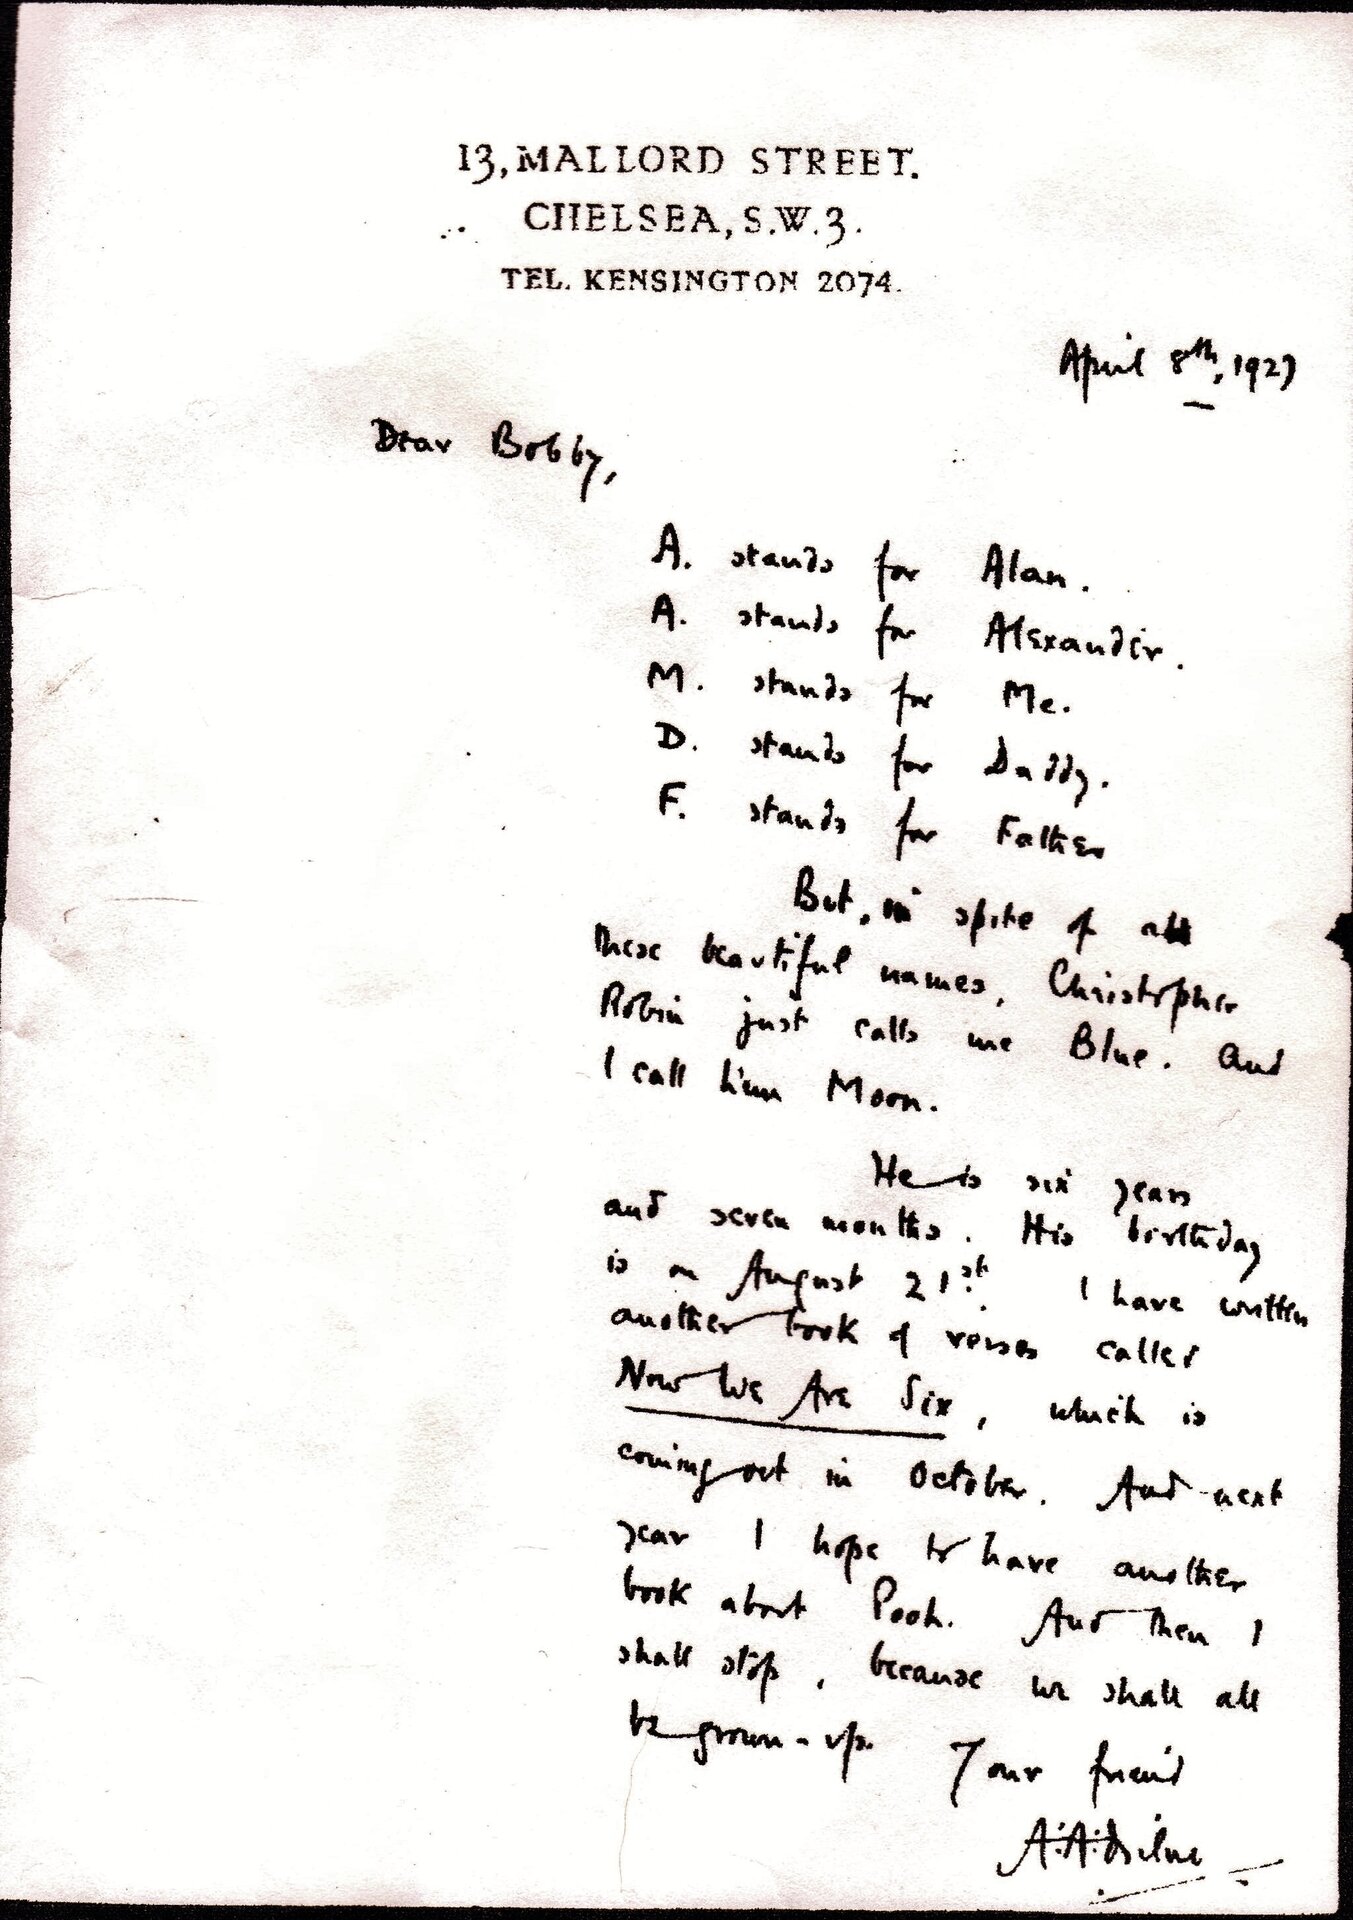 13, MALLORD STREET.
CHELSEA, S.W.3.
TEL. KENSINGTON 2074.
April 8th, 1927
Dear Bobby,
A. stands for Alan.
A. stands for Alexander.
M. stands for Me.
D. stands for Daddy.
F. stands for Father
But, in spite of all
these beautiful names, Christopher
Robin just calls me Blue. And
I call him Moon.
He is six years
and seven months. His birthday
is on August 21st. I have written
another book of verses called
Now We Are Six, which is
coming out in October. And next
year I hope to have another
book about Pooh. And then I
shall stop, because we shall all
be grown-up. Your friend
A.A.Milne